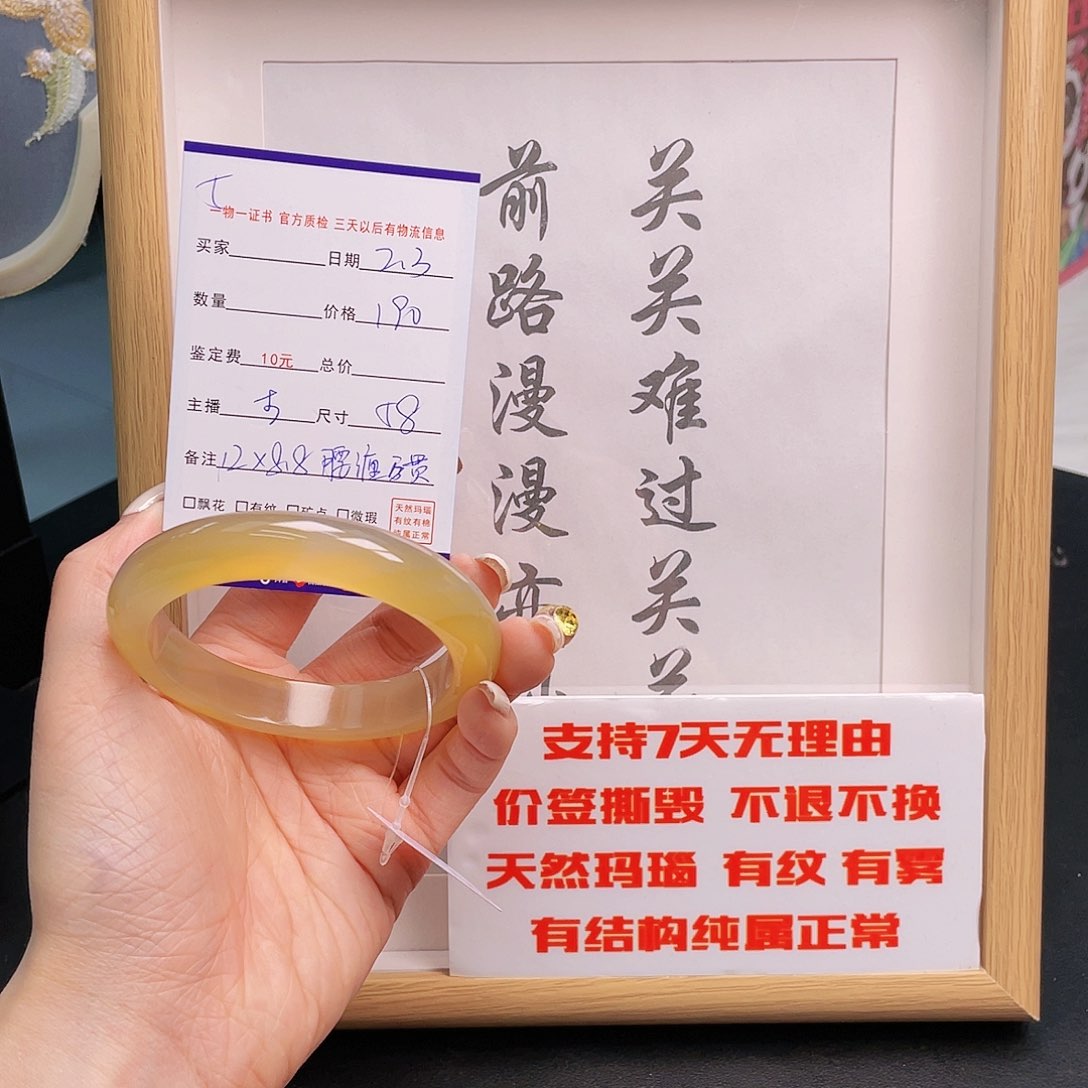 一物一证书 官方质检 三天以后有物流信息
买家 日期 2.3
数量 价格 190
鉴定费 10元 总价
主播 尺寸 58
备注 12×8.8 腰缠万贯
□飘花 □有纹 □矿点 □微瑕
天然玛瑙
有纹有棉
纯属正常
关关难过关关
前路漫漫亦
支持7天无理由
价签撕毁 不退不换
天然玛瑙 有纹 有雾
有结构纯属正常